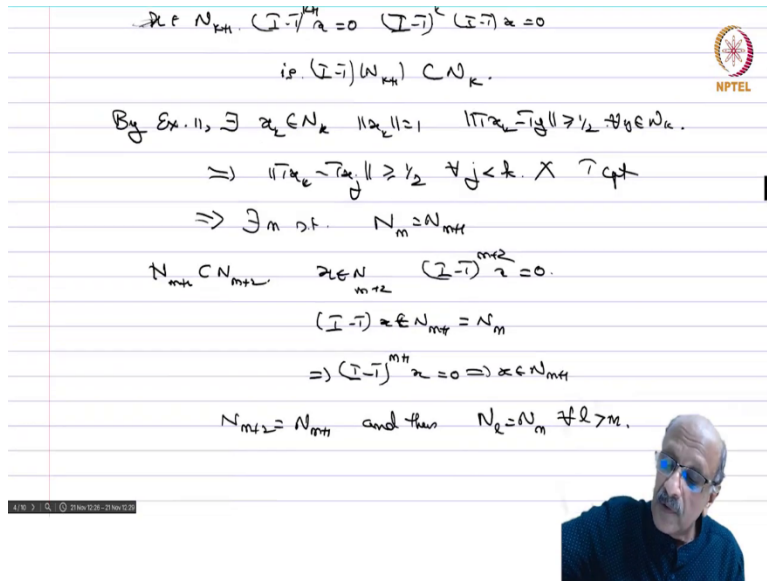 x ∈ N_{k+1}. (I-T)^{k+1} x = 0 (I-T)^k (I-T) x = 0
i.e. (I-T)(N_{k+1}) ⊂ N_k.
NPTEL
By Ex. 11, ∃ x_k ∈ N_k ‖x_k‖=1 ‖Tx_k - Ty‖ ≥ 1/2 ∀ y ∈ N_k.
⇒ ‖Tx_k - Tx_j‖ ≥ 1/2 ∀ j < k. X T cpt
⇒ ∃ m s.t. N_m = N_{m+1}
N_{m+1} ⊂ N_{m+2} x ∈ N_{m+2} (I-T)^{m+2} x = 0.
(I-T) x ∈ N_{m+1} = N_m
⇒ (I-T)^{m+1} x = 0 ⇒ x ∈ N_{m+1}
N_{m+2} = N_{m+1} and thus N_l = N_m ∀ l > m.
4/10 21 Nov 12:26 - 21 Nov 12:29